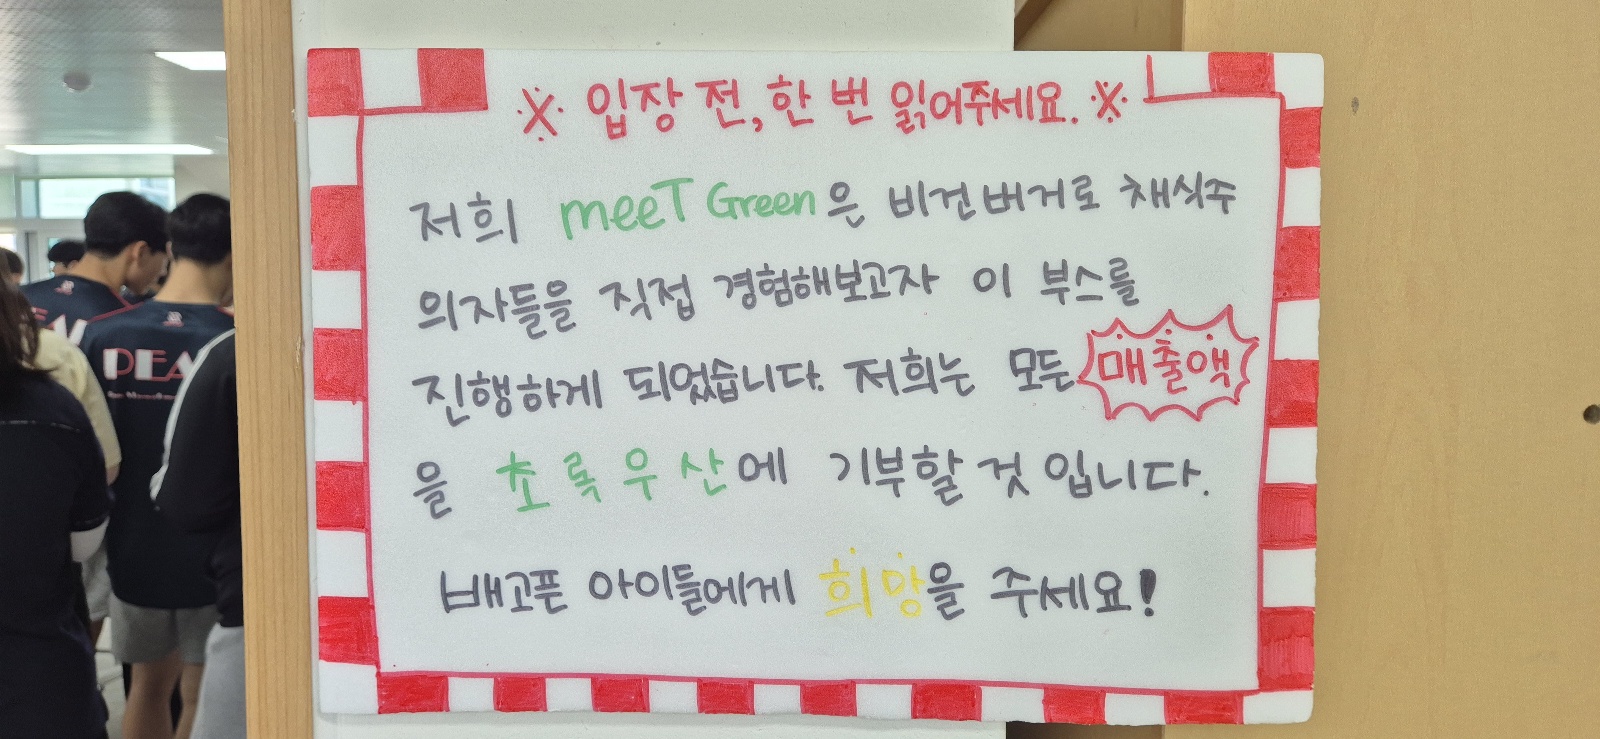 ※ 입장 전, 한 번 읽어주세요. ※
저희 meeT Green은 비건버거로 채식주
의자들을 직접 경험해보고자 이 부스를
진행하게 되었습니다. 저희는 모든 매출액
을 초록우산에 기부할 것 입니다.
배고픈 아이들에게 희망을 주세요!